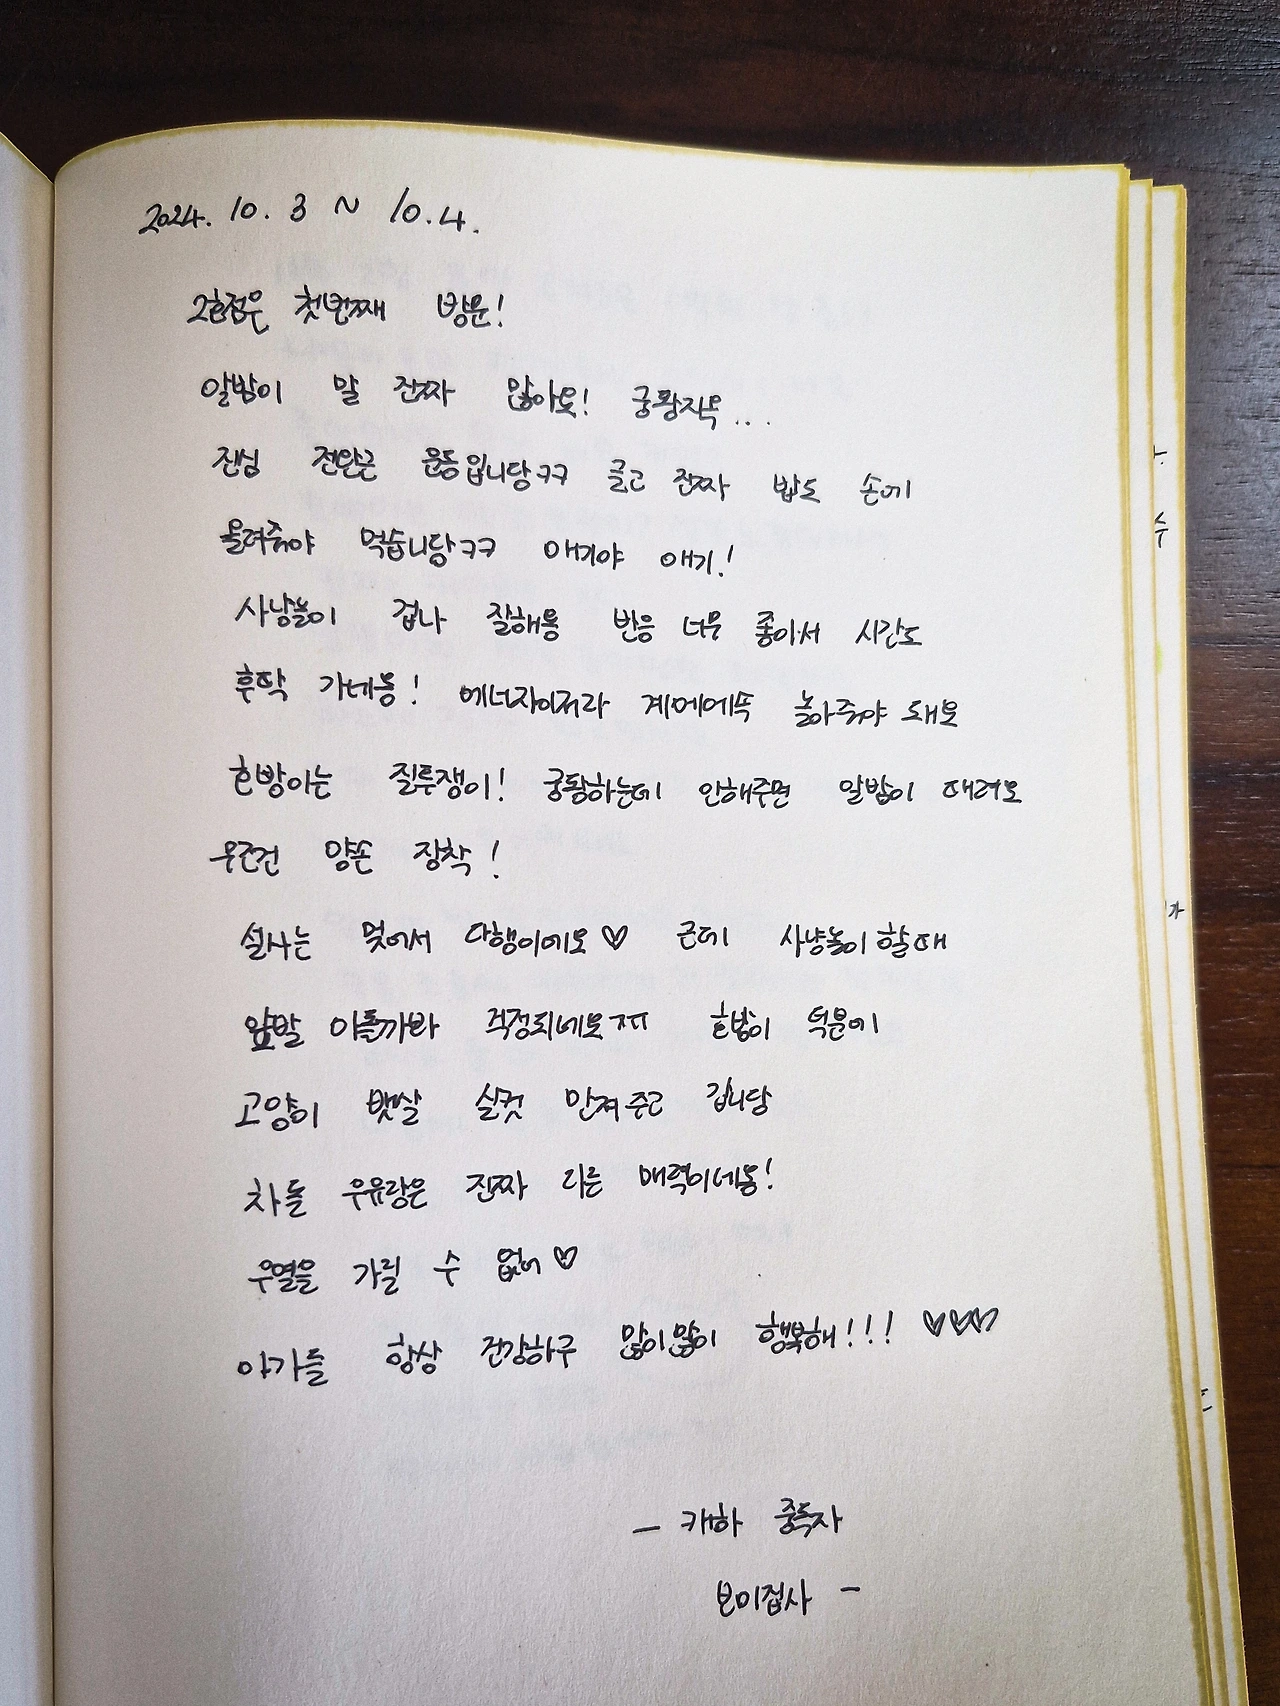 2024. 10. 3 ~ 10. 4.
2호점은 첫번째 방문!
알밤이 말 진짜 많아요! 궁팡지옥...
진심 전완근 운동입니당ㅋㅋ 글고 진짜 밥도 손에
올려줘야 먹습니당ㅋㅋ 애기야 애기!
사냥놀이 겁나 잘해용 반응 너무 좋아서 시간도
후딱 가네용! 에너자이저라 계에에에뚝 놀아줘야 돼요
호방이는 질투쟁이! 궁팡하는데 안해주면 알밤이 때려요
무조건 양손 장착!
설사는 멎어서 다행이에요♡ 근데 사냥놀이 할때
앞발 아플까봐 걱정되네요ㅠㅠ 호방이 덕분에
고양이 뱃살 실컷 만져주고 갑니당
차돌 우유랑은 진짜 다른 매력이네용!
우열을 가릴 수 없어♡
아가들 항상 건강하구 많이많이 행복해!!! ♡♡♡
- 캐하 중독자
본미집사 -
수
가